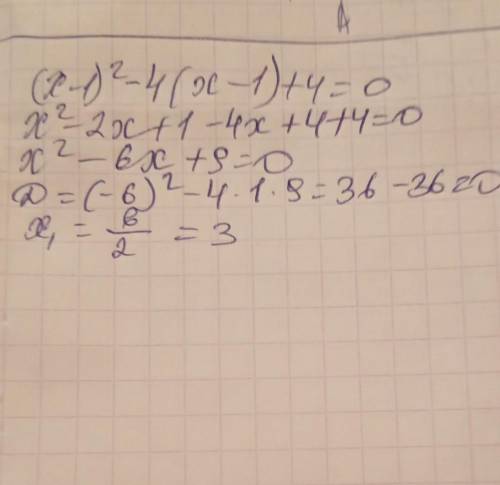 (x-1)² - 4(x-1) + 4 = 0
x² - 2x + 1 - 4x + 4 + 4 = 0
x² - 6x + 9 = 0
D = (-6)² - 4 · 1 · 9 = 36 - 36 = 0
x₁ = 6/2 = 3